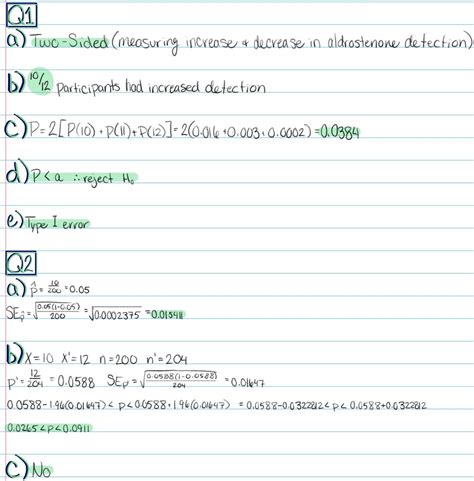 Q1
a) Two-Sided (measuring increase & decrease in aldrostenone detection)
b) 10/12 participants had increased detection
c) P=2[P(10)+P(11)+P(12)]=2(0.016+0.003+0.0002)=0.0384
d) P<a ∴ reject H₀
e) Type I error
Q2
a) p̂=10/200=0.05
SEp̂=√(0.05(1-0.05)/200)=√0.0002375=0.015411
b) X=10 X'=12 n=200 n'=204
p'=12/204=0.0588 SEp'=√(0.0588(1-0.0588)/204)=0.01647
0.0588-1.96(0.01647)<p<0.0588+1.96(0.01647)=0.0588-0.0322812<p<0.0588+0.0322812
0.0265<p<0.0911
c) No